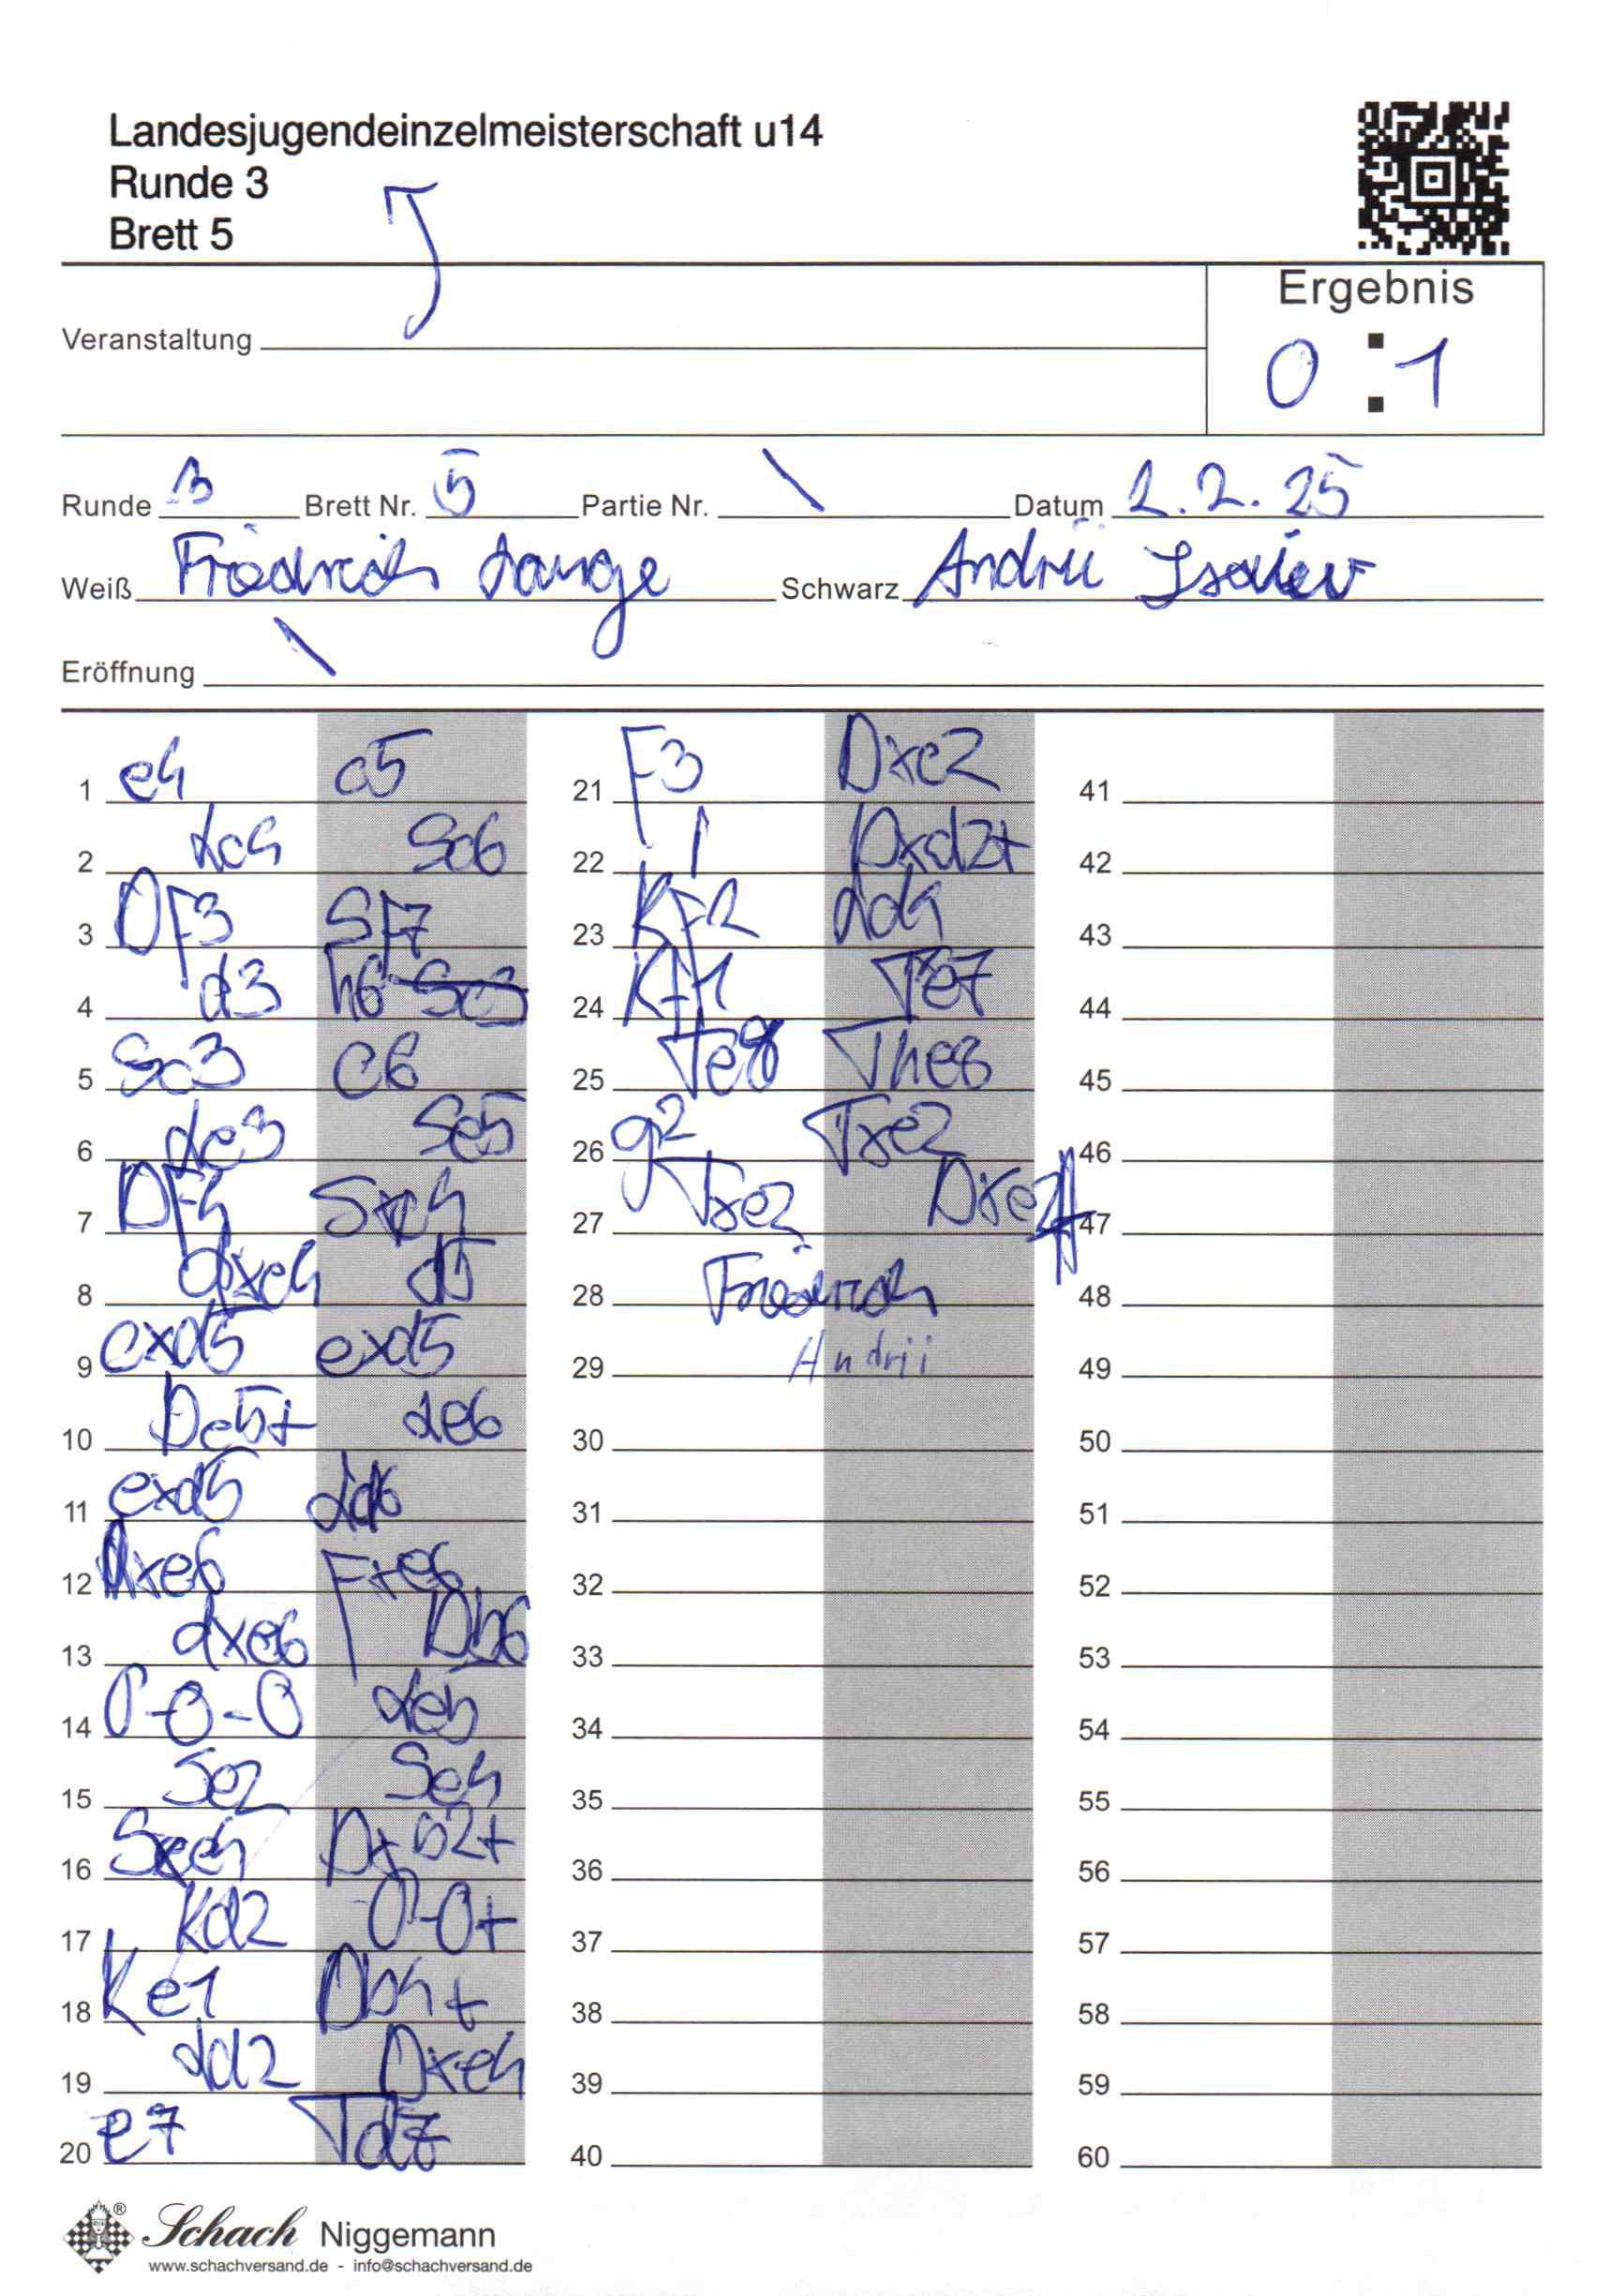 Landesjugendeinzelmeisterschaft u14
Runde 3
Brett 5
Ergebnis
0 : 1
Veranstaltung
Runde 3 Brett Nr. 5 Partie Nr. \ Datum 2.2.25
Weiß Friedrich Lange Schwarz Andrii
Eröffnung \
1 e4 c5
2 Lc4 Sc6
3 DF3 SF7
4 d3 h6 Sc3
5 Sc3 e6
6 Le3 Se5
7 DF4 Sxc4
8 dxc4 d5
9 cxd5 exd5
10 De5+ Le6
11 exd5 Ld6
12 dxe6 Fxe6
13 dxe6 Db6
14 0-0-0 Le5
15 Se2 Se4
16 Sxe4 Dxb2+
17 Kd2 0-0+
18 Ke1 Db4+
19 Ld2 Dxe4
20 e7 Td7
21 F3 Dxe2
22 Dxd2+
23 KF2 Ld4
24 KF1 Te7
25 Te8 The8
26 g2 Txe2
27 Txe2 Dxe2#
28 Friedrich
29 Andrii
30
31
32
33
34
35
36
37
38
39
40
41
42
43
44
45
46
47
48
49
50
51
52
53
54
55
56
57
58
59
60
Schach Niggemann
www.schachversand.de - info@schachversand.de